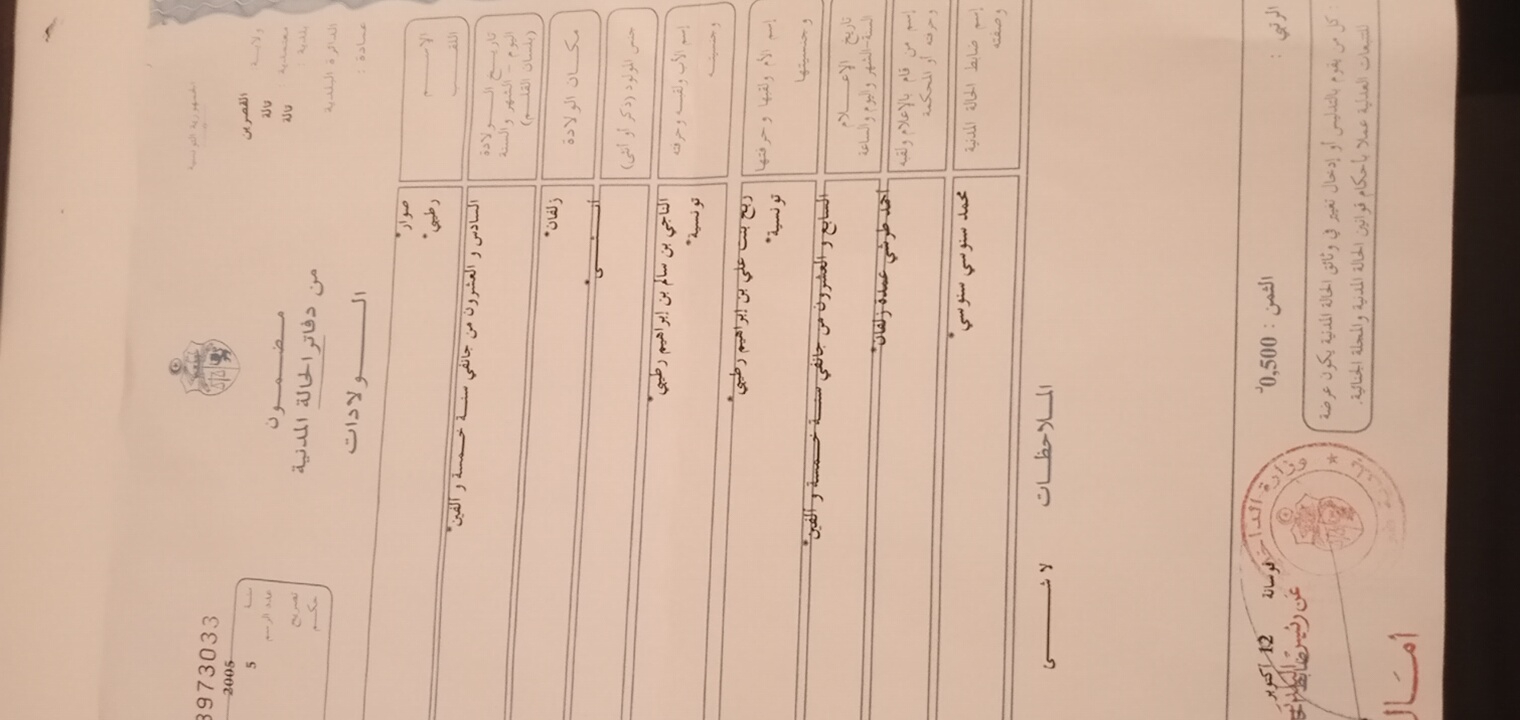 الجمهورية التونسية
ولاية القصرين
معتمدية : تالة
بلدية : تالة
الدائرة البلدية
عمادة :
مضمون
من دفاتر الحالة المدنية
الولادات
3973033
سنة 2005
عدد الرسم 5
تصريح
حكم
الاسم صوار*
اللقب رطيبي*
تاريخ الولادة السادس و العشرون من جانفي سنة خمسة و الفين*
(اليوم - الشهر والسنة
بلسان القلم)
مكان الولادة زلفان*
جنس المولود (ذكر أو أنثى) أنثى*
إسم الأب ولقبه وحرفته الناجي بن سالم بن إبراهيم رطيبي*
وجنسيته تونسية*
إسم الأم ولقبها وحرفتها ربح بنت علي بن إبراهيم رطيبي*
وجنسيتها تونسية*
تاريخ الإعلام السابع و العشرون من جانفي سنة خمسة و الفين*
السنة-الشهر واليوم والساعة
إسم من قام بالإعلام ولقبه احمد طرشي عمدة زلفان*
وحرفته أو المحكمة
إسم ضابط الحالة المدنية محمد سنوسي سنوسي*
وصفته
الملاحظات لا شئ
الثمن : 0,500د
: كل من يقوم بالتدليس أو إدخال تغيير في وثائق الحالة المدنية يكون عرضة
للتتبعات العدلية عملا بأحكام قوانين الحالة المدنية والمجلة الجنائية.
وزارة الداخلية
فوسانة 12 أكتوبر
عن رئيس